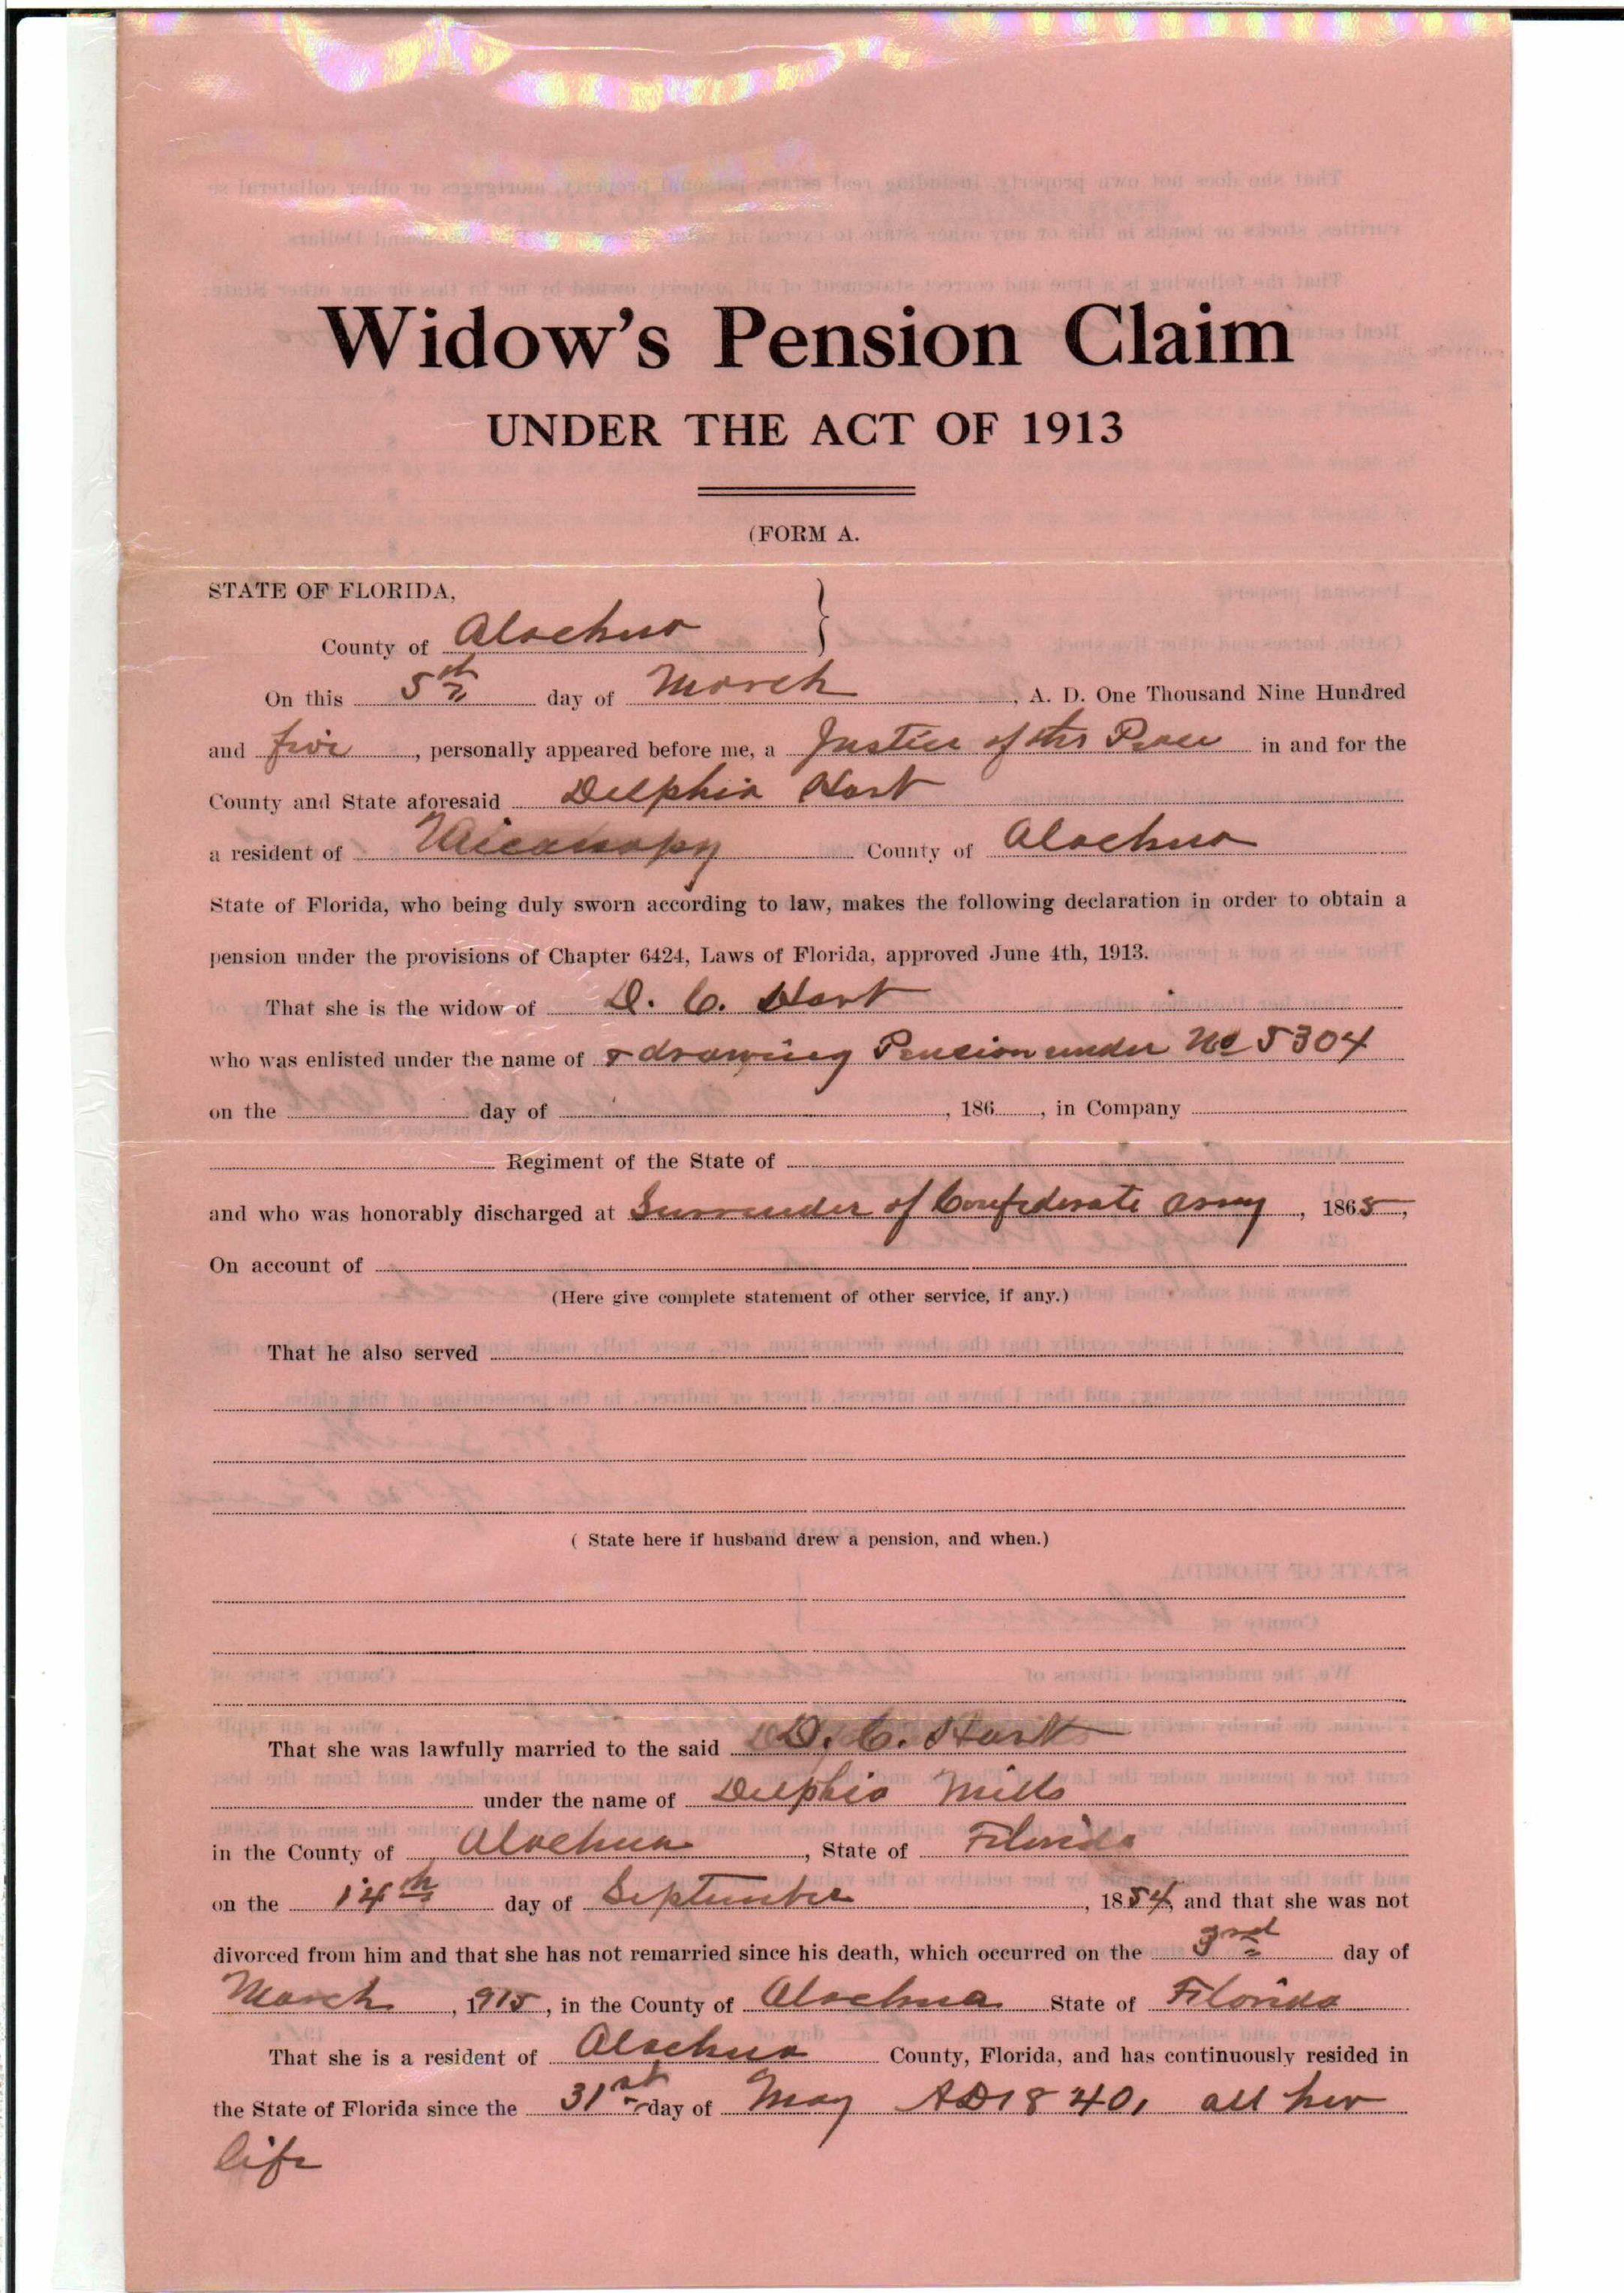 Widow's Pension Claim
UNDER THE ACT OF 1913
(FORM A.
STATE OF FLORIDA,
County of Alachua
On this 5th day of March, A. D. One Thousand Nine Hundred
and five, personally appeared before me, a Justice of the Peace in and for the
County and State aforesaid Delphia Hart
a resident of Micanopy County of Alachua
State of Florida, who being duly sworn according to law, makes the following declaration in order to obtain a
pension under the provisions of Chapter 6424, Laws of Florida, approved June 4th, 1913.
That she is the widow of D. C. Hart
who was enlisted under the name of & drawing Pension under No 5304
on the day of , 186 , in Company
Regiment of the State of
and who was honorably discharged at Surrender of Confederate Army, 1865,
On account of
(Here give complete statement of other service, if any.)
That he also served
( State here if husband drew a pension, and when.)
That she was lawfully married to the said D. C. Hart
under the name of Delphia Mills
in the County of Alachua, State of Florida
on the 14th day of September, 1854, and that she was not
divorced from him and that she has not remarried since his death, which occurred on the 3rd day of
March, 1915, in the County of Alachua State of Florida
That she is a resident of Alachua County, Florida, and has continuously resided in
the State of Florida since the 31st day of May AD 1840, all her
life